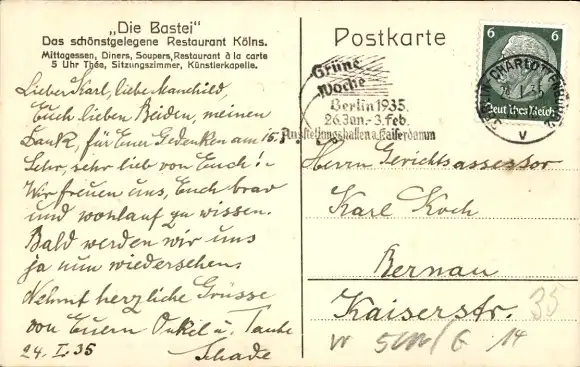 „Die Bastei"
Das schönstgelegene Restaurant Kölns.
Mittagessen, Diners, Soupers, Restaurant à la carte
5 Uhr Thée, Sitzungszimmer, Künstlerkapelle.
Lieber Karl, liebe
Euch lieben Beiden, meinen
Dank, für Euer Gedenken am 15. I.
Sehr, sehr lieb von Euch!
Wir freuen uns, Euch brav
und wohlauf zu wissen.
Bald werden wir uns
ja nun wiedersehen.
Nehmt herzliche Grüsse
von Euern Onkel u. Tante
24. I. 35 Schade
Postkarte
Grüne
Woche
Berlin 1935
26.Jan.-3.Feb.
Ausstellungshallen a. Kaiserdamm
BERLIN-CHARLOTTENBURG
1.35
V
6 6
Deutsches Reich
Herrn Gerichtsassessor
Karl Koch
Bernau
Kaiserstr. 35
14